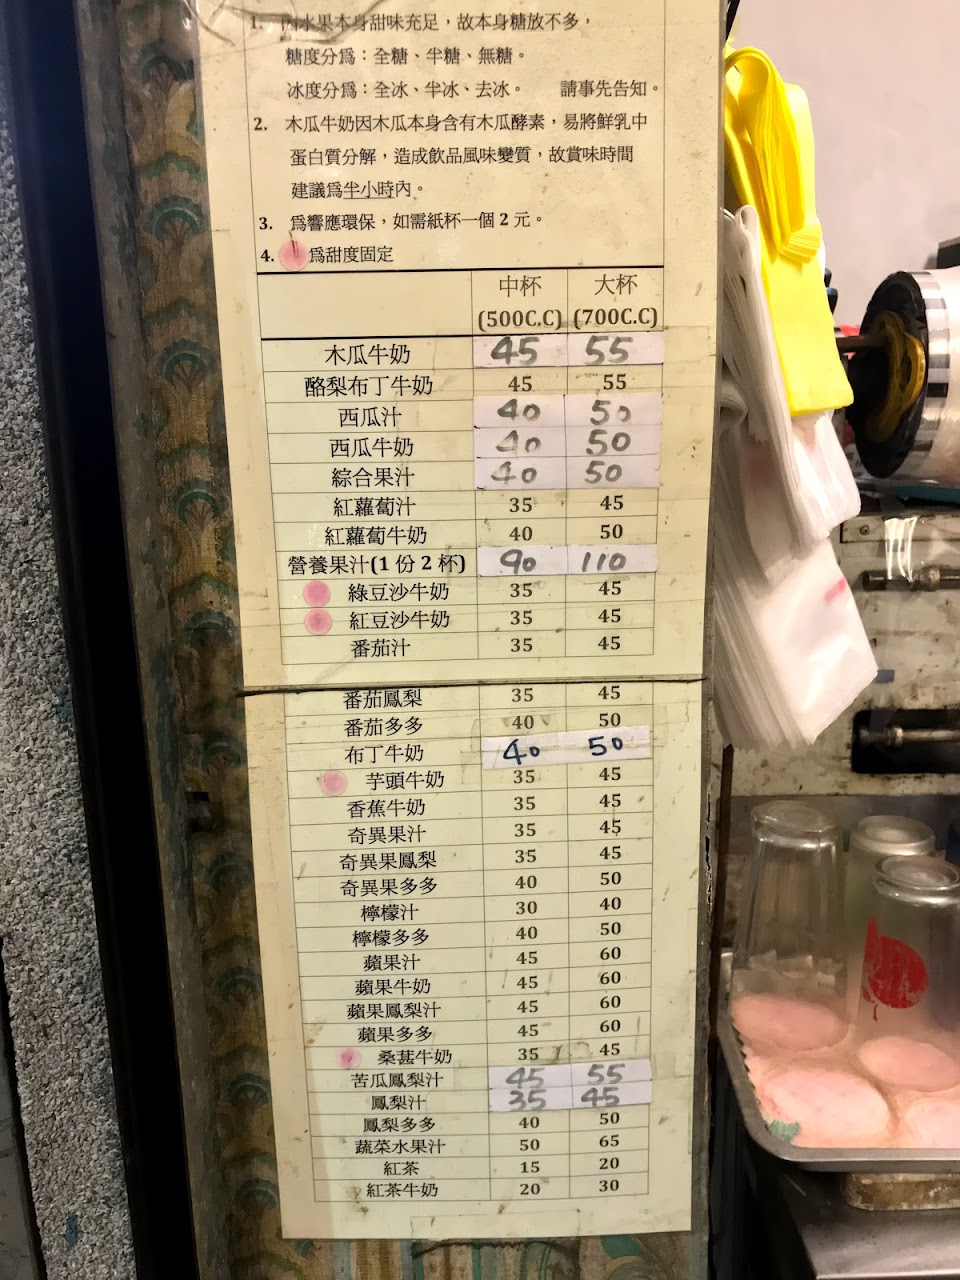 1. 因水果本身甜味充足，故本身糖放不多，
糖度分為：全糖、半糖、無糖。
冰度分為：全冰、半冰、去冰。 請事先告知。
2. 木瓜牛奶因木瓜本身含有木瓜酵素，易將鮮乳中
蛋白質分解，造成飲品風味變質，故賞味時間
建議為半小時內。
3. 為響應環保，如需紙杯一個2元。
4. 為甜度固定
中杯 大杯
(500C.C) (700C.C)
木瓜牛奶 45 55
酪梨布丁牛奶 45 55
西瓜汁 40 50
西瓜牛奶 40 50
綜合果汁 40 50
紅蘿蔔汁 35 45
紅蘿蔔牛奶 40 50
營養果汁(1份2杯) 90 110
綠豆沙牛奶 35 45
紅豆沙牛奶 35 45
番茄汁 35 45
番茄鳳梨 35 45
番茄多多 40 50
布丁牛奶 40 50
芋頭牛奶 35 45
香蕉牛奶 35 45
奇異果汁 35 45
奇異果鳳梨 35 45
奇異果多多 40 50
檸檬汁 30 40
檸檬多多 40 50
蘋果汁 45 60
蘋果牛奶 45 60
蘋果鳳梨汁 45 60
蘋果多多 45 60
桑葚牛奶 35 45
苦瓜鳳梨汁 45 55
鳳梨汁 35 45
鳳梨多多 40 50
蔬菜水果汁 50 65
紅茶 15 20
紅茶牛奶 20 30